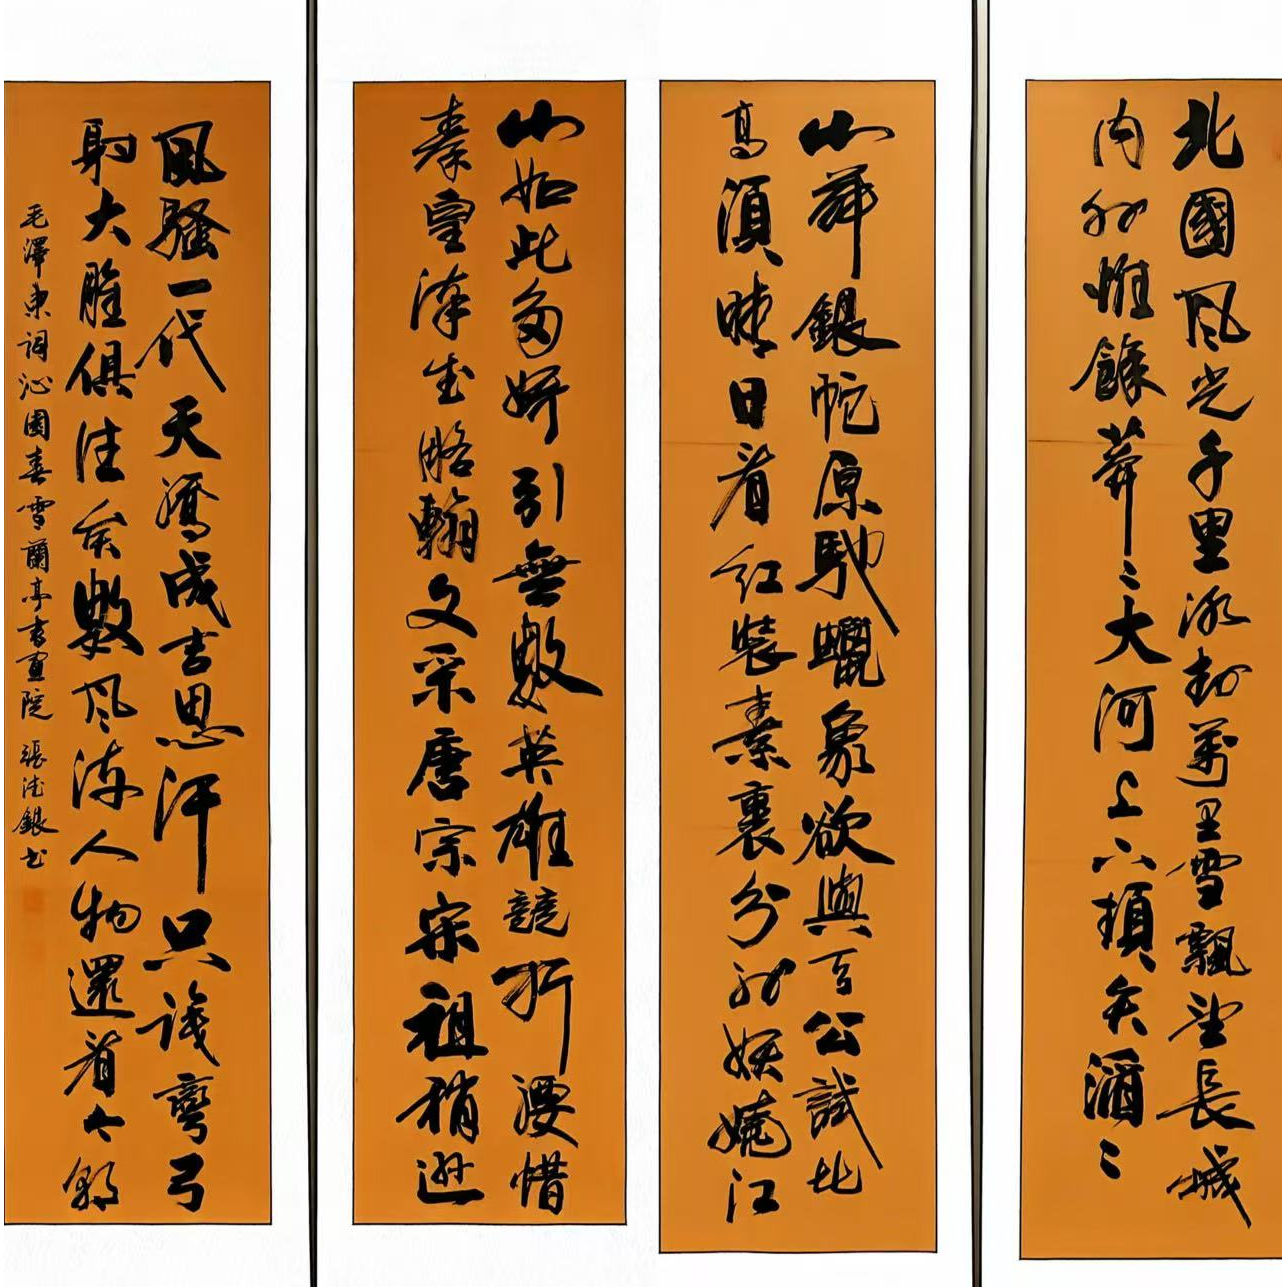 北國風光千里冰封萬里雪飄望長城
內外惟餘莽〻大河上下頓失滔〻
山舞銀蛇原馳蠟象欲與天公試比
高須晴日看紅裝素裹分外妖嬈江
山如此多嬌引無數英雄競折腰惜
秦皇漢武略輸文采唐宗宋祖稍遜
風騷一代天驕成吉思汗只識彎弓
射大雕俱往矣數風流人物還看今朝
毛澤東詞沁園春雪蘭亭書畫院張德銀書